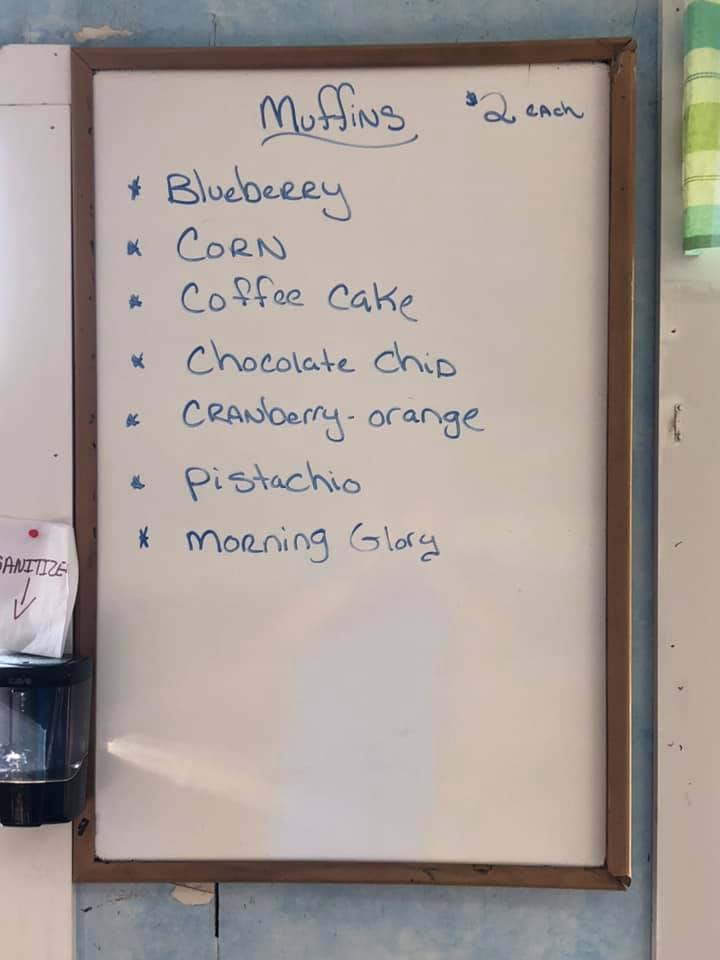 Muffins $2 each
* Blueberry
* Corn
* Coffee Cake
* Chocolate Chip
* Cranberry-orange
* Pistachio
* Morning Glory
SANITIZE